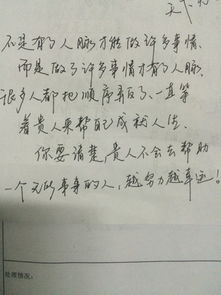 不是有了人脉才能做许多事情.
而是做了许多事情才有了人脉.
很多人都把顺序弄反了、一直等
着贵人来帮自己成就人生.
你要清楚,贵人不会去帮助
一个无所事事的人,越努力越幸运!
处理情况: